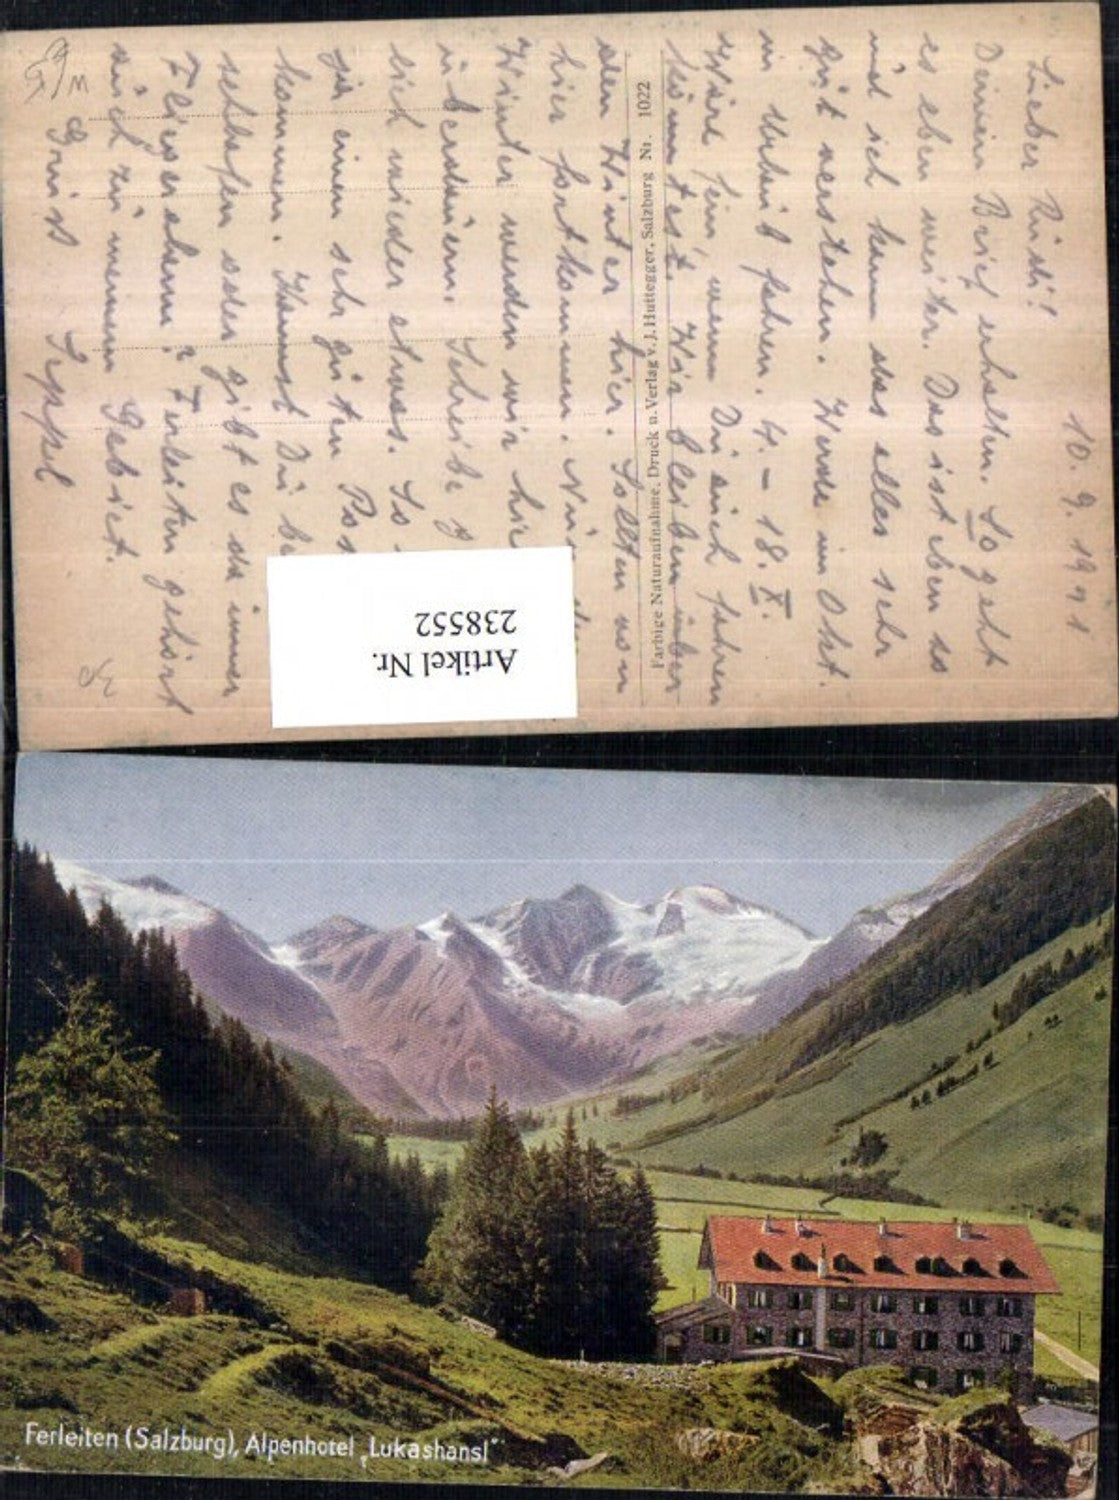 10. 9. 1941
Lieber Rudi!
Deinen Brief erhalten. So geht
es eben weiter. Das ist eben so
und ich kann das alles sehr
gut verstehen. Werde im Okt.
in Urlaub fahren. 4. – 18. X.
Wäre fein, wenn Du auch fahren
könntest. Wir bleiben über
den Winter hier. Sollten vom
hier fortkommen. Nur
Winter werden wir hier
überdauern. Schreibe
lich wieder etwas. So
ja einen sehr guten
kommen. Kannst Du
schlafen oder gibt es da immer
Fliegeralarm? Ferleiten gehört
auch zu meinem Gebiet.
Gruss Seppel
Farbige Naturaufnahme, Druck u. Verlag v. J. Huttegger, Salzburg Nr. 1022
Artikel Nr.
238552
Ferleiten (Salzburg), Alpenhotel „Lukashansl"